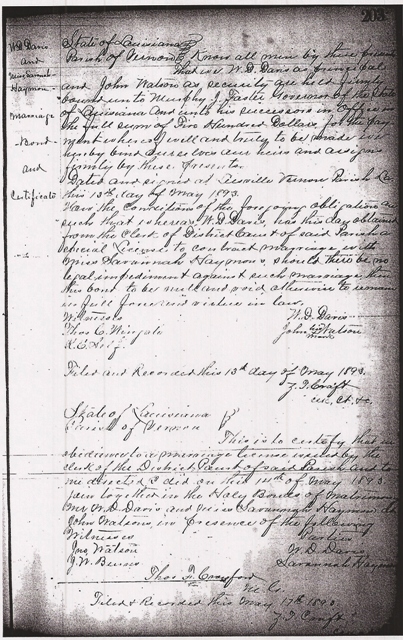 203
W.D. Davis
and
Miss Savannah
Haymon
Marriage
Bond
and
Certificate
State of Louisiana
Parish of Vernon Know all men by these presents
That we W.D. Davis as principal
and John Watson as security are held firmly
bound unto Murphy J. Foster Governor of the State
of Louisiana and unto his successors in office
the full sum of Five Hundred Dollars for the pay
ment whereof well and truly to be made we
hereby bind ourselves our heirs and assigns
firmly by these presents.
Dated and signed at Leesville Vernon Parish La
this 13th day of May 1893.
Now the Conditions of the foregoing obligation are
such that whereas W.D. Davis, has this day obtained
from the Clerk of District Court of said Parish a
special License to contract marriage with
Miss Savannah Haymon, should there be no
legal impediment against such marriage then
this bond to be null and void otherwise to remain
in full force and virtue in law.
Witnesses W.D. Davis
Thos C. Wingate John his Watson
mark
Filed and Recorded this 13th day of May 1893.
Z.T. Craft
State of Louisiana
Parish of Vernon
This is to certify that in
obedience to a marriage license issued by the
clerk of the District Court of said Parish and to
me directed I did on this 14th of May 1893
join together in the Holy Bonds of Matrimony
Mr W.D. Davis and Miss Savannah Haymon
John Watson, in presence of the following
Witnesses Parties
Jno Watson W.D. Davis
J.W. Savannah Haymon
Thos F. Crawford
Filed & Recorded this May 17th 1893
Z.T. Craft